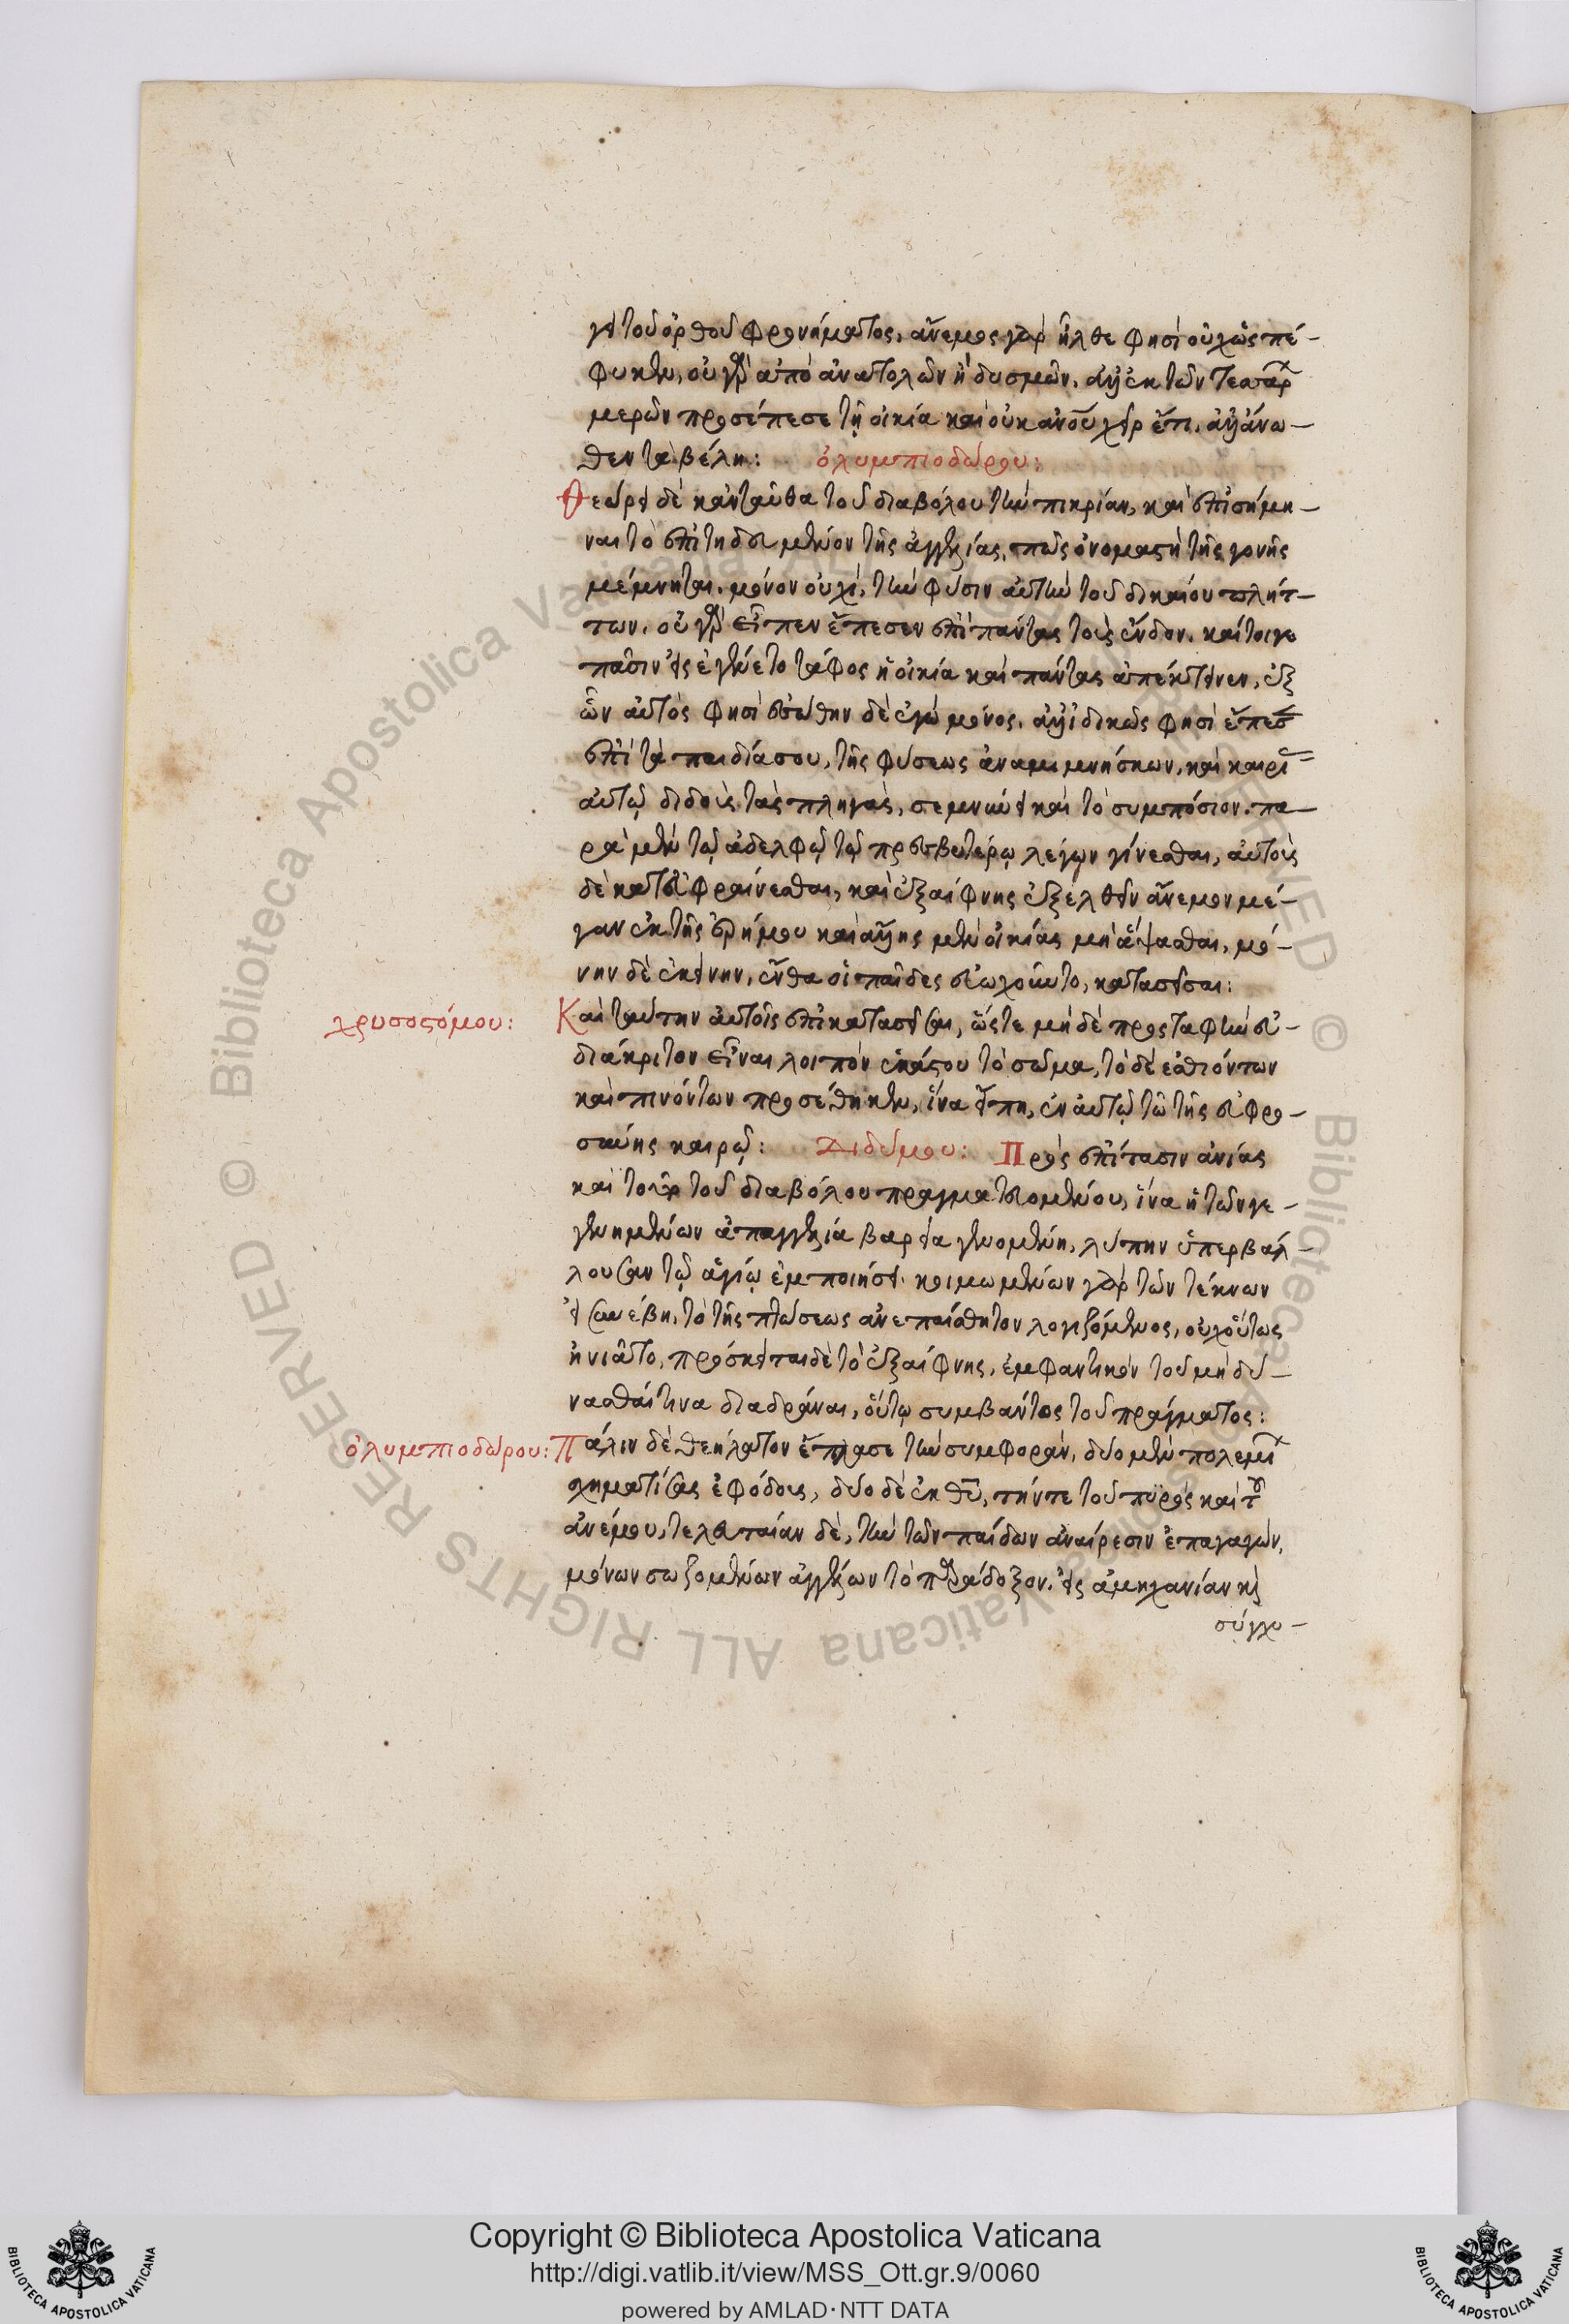 γει τοῦ ὀρθοῦ φρονήματος, ἄνεμος γὰρ ἦλθε φησὶ οὐχ ὡς πέ-
φυκεν, οὐ γὰρ ἀπὸ ἀνατολῶν ἢ δυσμῶν. ἀλλ' ἐκ τῶν τεσσάρ
μερῶν προσέπεσε τῇ οἰκία καὶ οὐκ ἔτι. ἀλλ' ἄνω-
θεν τὰ βέλη: ὀλυμπιοδώρου:
Θεώρει δὲ κἀνταῦθα τοῦ διαβόλου τὴν πικρίαν, καὶ ἐπισήμη-
ναι τὸ ἐπιτηδευμένον τῆς ἀγγελίας, πῶς ὀνομαστὶ τῆς γονῆς
μέμνηται. μόνον οὐχὶ, τὴν φύσιν αὐτὴν τοῦ δικαίου πλήτ-
των. οὐ γὰρ εἶπεν ἔπεσεν ἐπὶ πάντας τοὺς ἔνδον. καίτοιγε
πᾶσιν εἷς ἐγένετο τάφος ἡ οἰκία καὶ πάντας ἀπέκτεινεν, ἐξ
ὧν αὐτὸς φησὶ ἐσώθην δὲ ἐγὼ μόνος. ἀλλ' ἰδικῶς φησὶ ἔπεσ
ἐπὶ τὰ παιδία σου, τῆς φύσεως ἀναμιμνήσκων, καὶ καιρί
αὐτῷ διδοὺς τὰς πληγὰς, σεμνύνει καὶ τὸ συμπόσιον. πα-
ρὰ μὲν τῷ ἀδελφῷ τῷ πρεσβυτέρῳ λέγων γίνεσθαι, αὐτοὺς
δὲ κατευφραίνεσθαι, καὶ ἐξαίφνης ἐξελθεῖν ἄνεμον μέ-
γαν ἐκ τῆς ἐρήμου καὶ ἄλλης μὲν οἰκίας μὴ ἅψασθαι, μό-
νην δὲ ἐκείνην, ἔνθα οἱ παῖδες εὐωχοῦντο, κατασεῖσαι:
χρυσοστόμου: Καὶ ταύτην αὐτοῖς ἐπικατασεῖσαι, ὥστε μὴ δὲ πρὸς ταφὴν εὐ-
διάκριτον εἶναι λοιπὸν ἑκάστου τὸ σῶμα, τὸ δὲ ἐσθιόντων
καὶ πινόντων προσέθηκεν, ἵνα εἴπη, ἐν αὐτῷ τῶ τῆς εὐφρο-
σύνης καιρῷ: Διδύμου: Πρὸς ἐπίτασιν ἀνίας
καὶ τοῦτο τοῦ διαβόλου πραγματευομένου, ἵνα ἡ τῶν γε-
γενημένων ἀπαγγελία βαρεῖα γενομένη, λύπην ὑπερβάλ-
λουσαν τῷ ἁγίῳ ἐμποιήσει. κοιμωμένων γὰρ τῶν τέκνων
εἰ συνέβη, τὸ τῆς πτώσεως ἀνεπαίσθητον λογιζόμενος, οὐχ οὕτως
ἠνιᾶτο, πρόσκειται δὲ τὸ ἐξαίφνης, ἐμφαντικὸν τοῦ μὴ δύ-
νασθαί τινα διαδράναι, οὕτω συμβαντος τοῦ πράγματος:
ὀλυμπιοδώρου: Πάλιν δὲ θεήλατον ἔπλασε τὴν συμφορὰν, δύο μὲν πολεμι
σχηματίσας ἐφόδους, δύο δὲ ἐκ θυ, τήν τε τοῦ πυρὸς καὶ τοῦ
ἀνέμου, τελευταίαν δὲ, τὴν τῶν παίδων ἀναίρεσιν ἐπαγαγὼν,
μόνων σωζομένων ἀγγέλων τὸ παράδοξον. εἰς ἀμηχανίαν καὶ
σύγχυ-
Copyright © Biblioteca Apostolica Vaticana
http://digi.vatlib.it/view/MSS_Ott.gr.9/0060
powered by AMLAD·NTT DATA